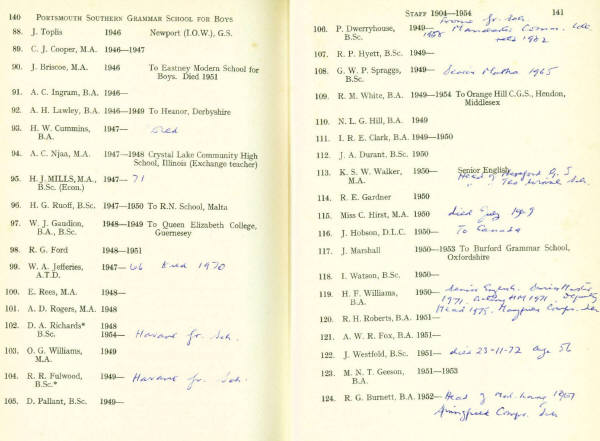 140 PORTSMOUTH SOUTHERN GRAMMAR SCHOOL FOR BOYS
88. J. Toplis 1946 Newport (I.O.W.), G.S.
89. C. J. Cooper, M.A. 1946—1947
90. J. Briscoe, M.A. 1946 To Eastney Modern School for
Boys. Died 1951
91. A. C. Ingram, B.A. 1946—
92. A. H. Lawley, B.A. 1946—1949 To Heanor, Derbyshire
93. H. W. Cummins, 1947— Died
B.A.
94. A. C. Njaa, M.A. 1947—1948 Crystal Lake Community High
School, Illinois (Exchange teacher)
95. H. J. MILLS, M.A., 1947— 71
B.Sc. (Econ.)
96. H. G. Ruoff, B.Sc. 1947—1950 To R.N. School, Malta
97. W. J. Gaudion, 1948—1949 To Queen Elizabeth College,
B.A., B.Sc. Guernesey
98. R. G. Ford 1948—1951
99. W. A. Jefferies, 1947— 66 Died 1970
A.T.D.
100. E. Rees, M.A. 1948—
101. A. D. Rogers, M.A. 1948
102. D. A. Richards* 1948
B.Sc. 1954— Havant Gr. Sch.
103. O. G. Williams, 1949
M.A.
104. R. R. Fulwood, 1949— Havant Gr. Sch.
B.Sc.*
105. D. Pallant, B.Sc. 1949—
STAFF 1904—1954 141
106. P. Dwerryhouse, 1949— Gr. Sch.
B.Sc. 1958 Manchester Comm. Coll.
1982
107. R. P. Hyett, B.Sc. 1949—
108. G. W. P. Spraggs, 1949— Senior Maths 1965
B.Sc.
109. R. M. White, B.A. 1949—1954 To Orange Hill C.G.S., Hendon,
Middlesex
110. N. L. G. Hill, B.A. 1949
111. I. R. E. Clark, B.A. 1949—1950
112. J. A. Durant, B.Sc. 1950
113. K. S. W. Walker, 1950— Senior English
M.A. Head of G. S
Sch.
114. R. E. Gardner 1950
115. Miss C. Hirst, M.A. 1950 died July
116. J. Hobson, D.L.C. 1950— To Canada
117. J. Marshall 1950—1953 To Burford Grammar School,
Oxfordshire
118. I. Watson, B.Sc. 1950—
119. H. F. Williams, 1950— Senior English. Senior Master
B.A. 1971. Acting HM 1971. Deputy
Head 1975. Compr. Sch
120. R. H. Roberts, B.A. 1951—
121. A. W. R. Fox, B.A. 1951—
122. J. Westfold, B.Sc. 1951— died 23-11-72 age 56
123. M. N. T. Geeson, 1951—1953
B.A.
124. R. G. Burnett, B.A. 1952— Head of Mod. Lang
Springfield Compr. Sch